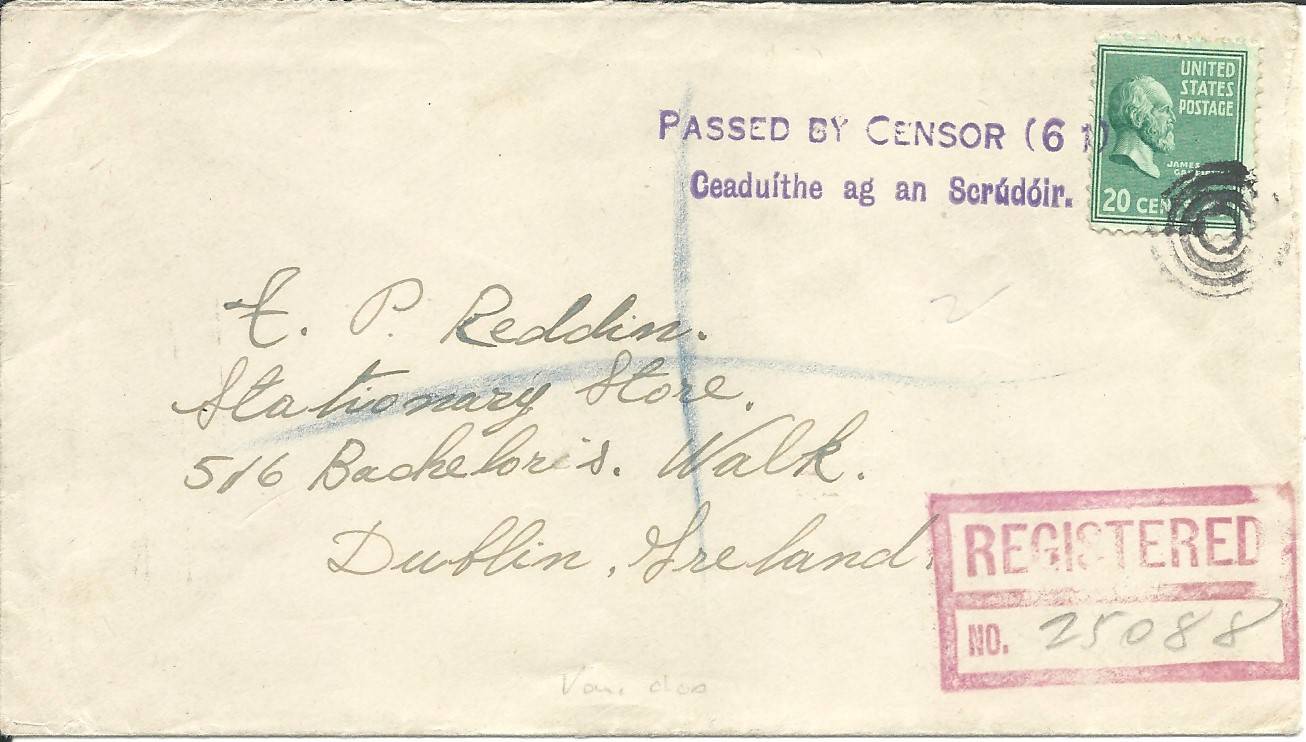 UNITED
STATES
POSTAGE
PASSED BY CENSOR (6 1)
Ceaduíthe ag an Scrúdóir.
JAMES
20 CEN
P. Reddin.
Stationary Store.
516 Bachelor's. Walk.
Dublin, Ireland.
REGISTERED
NO. 25088